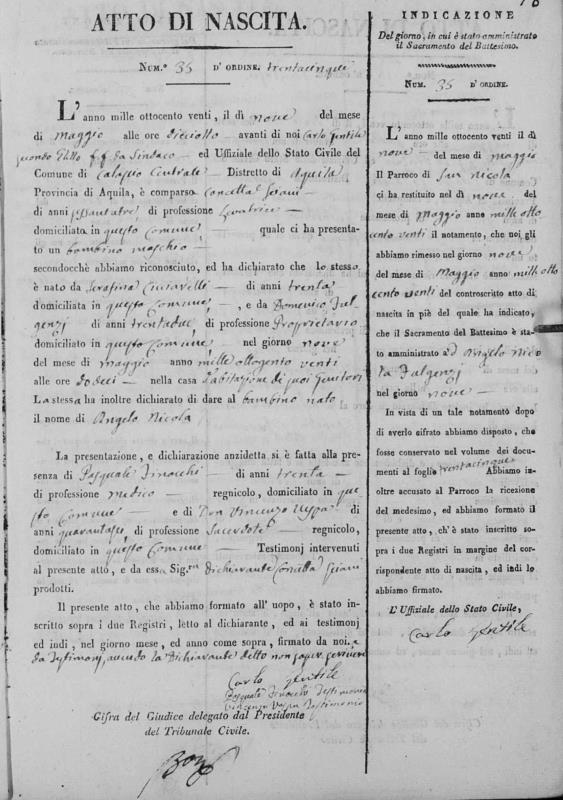 ATTO DI NASCITA.
Num.° 35 D' ORDINE. trentacinque
L'anno mille ottocento venti, il dì nove del mese
di Maggio alle ore dieciotto avanti di noi Carlo Gentile
ff da Sindaco ed Uffiziale dello Stato Civile del
Comune di Distretto di Aquila
Provincia di Aquila, è comparso Concetta
di anni sessantatre di professione Levatrice
domiciliata in questo Comune, quale ci ha presenta-
to un bambino maschio
secondocchè abbiamo riconosciuto, ed ha dichiarato che lo stesso
è nato da Serafina di anni trenta
domiciliata in questo Comune, e da Domenico Ful-
genzj di anni trentadue, di professione Proprietario
domiciliato in questo Comune nel giorno nove
del mese di Maggio anno mille ottogento venti
alle ore dodeci nella casa d'abitazione di suoi Genitori
La stessa ha inoltre dichiarato di dare al bambino nato
il nome di Angelo Nicola
La presentazione, e dichiarazione anzidetta si è fatta alla pre-
senza di Pasquale Finocchi di anni trenta
di professione medico regnicolo, domiciliato in que
sto Comune e di Don Vincenzo Vespa di
anni quarantasei, di professione Sacerdote regnicolo,
domiciliato in questo Comune Testimonj intervenuti
al presente atto, e da essa Sig.ra dichiarante Concetta
prodotti.
Il presente atto, che abbiamo formato all' uopo, è stato in-
scritto sopra i due Registri, letto al dichiarante, ed ai testimonj
ed indi, nel giorno mese, ed anno come sopra, firmato da noi, e
da Testimonj, avendo la Dichiarante detto non saper scrivere
Carlo Gentile
Pasquale Finocchi Testimonio
Vincenzo Vespa Testimonio
Cifra del Giudice delegato dal Presidente
del Tribunale Civile.
INDICAZIONE
Del giorno, in cui è stato amministrato
il Sacramento del Battesimo.
Num. 35 D' ORDINE.
L' anno mille ottocento venti il dì
nove del mese di Maggio
Il Parroco di San Nicola
ci ha restituito nel dì nove del
mese di Maggio anno mille otto
cento venti il notamento, che noi gli
abbiamo rimesso nel giorno nove
del mese di Maggio anno mille otto
cento venti del controscritto atto di
nascita in piè del quale ha indicato,
che il Sacramento del Battesimo è sta-
to amministrato ad Angelo Nico
la Fulgenzj
nel giorno nove
In vista di un tale notamento dopo
di averlo cifrato abbiamo disposto, che
fosse conservato nel volume dei docu-
menti al foglio trentacinque Abbiamo in-
oltre accusato al Parroco la ricezione
del medesimo, ed abbiamo formato il
presente atto, ch' è stato inscritto so-
pra i due Registri in margine del cor-
rispondente atto di nascita, ed indi lo
abbiamo firmato.
L' Uffiziale dello Stato Civile,
Carlo Gentile